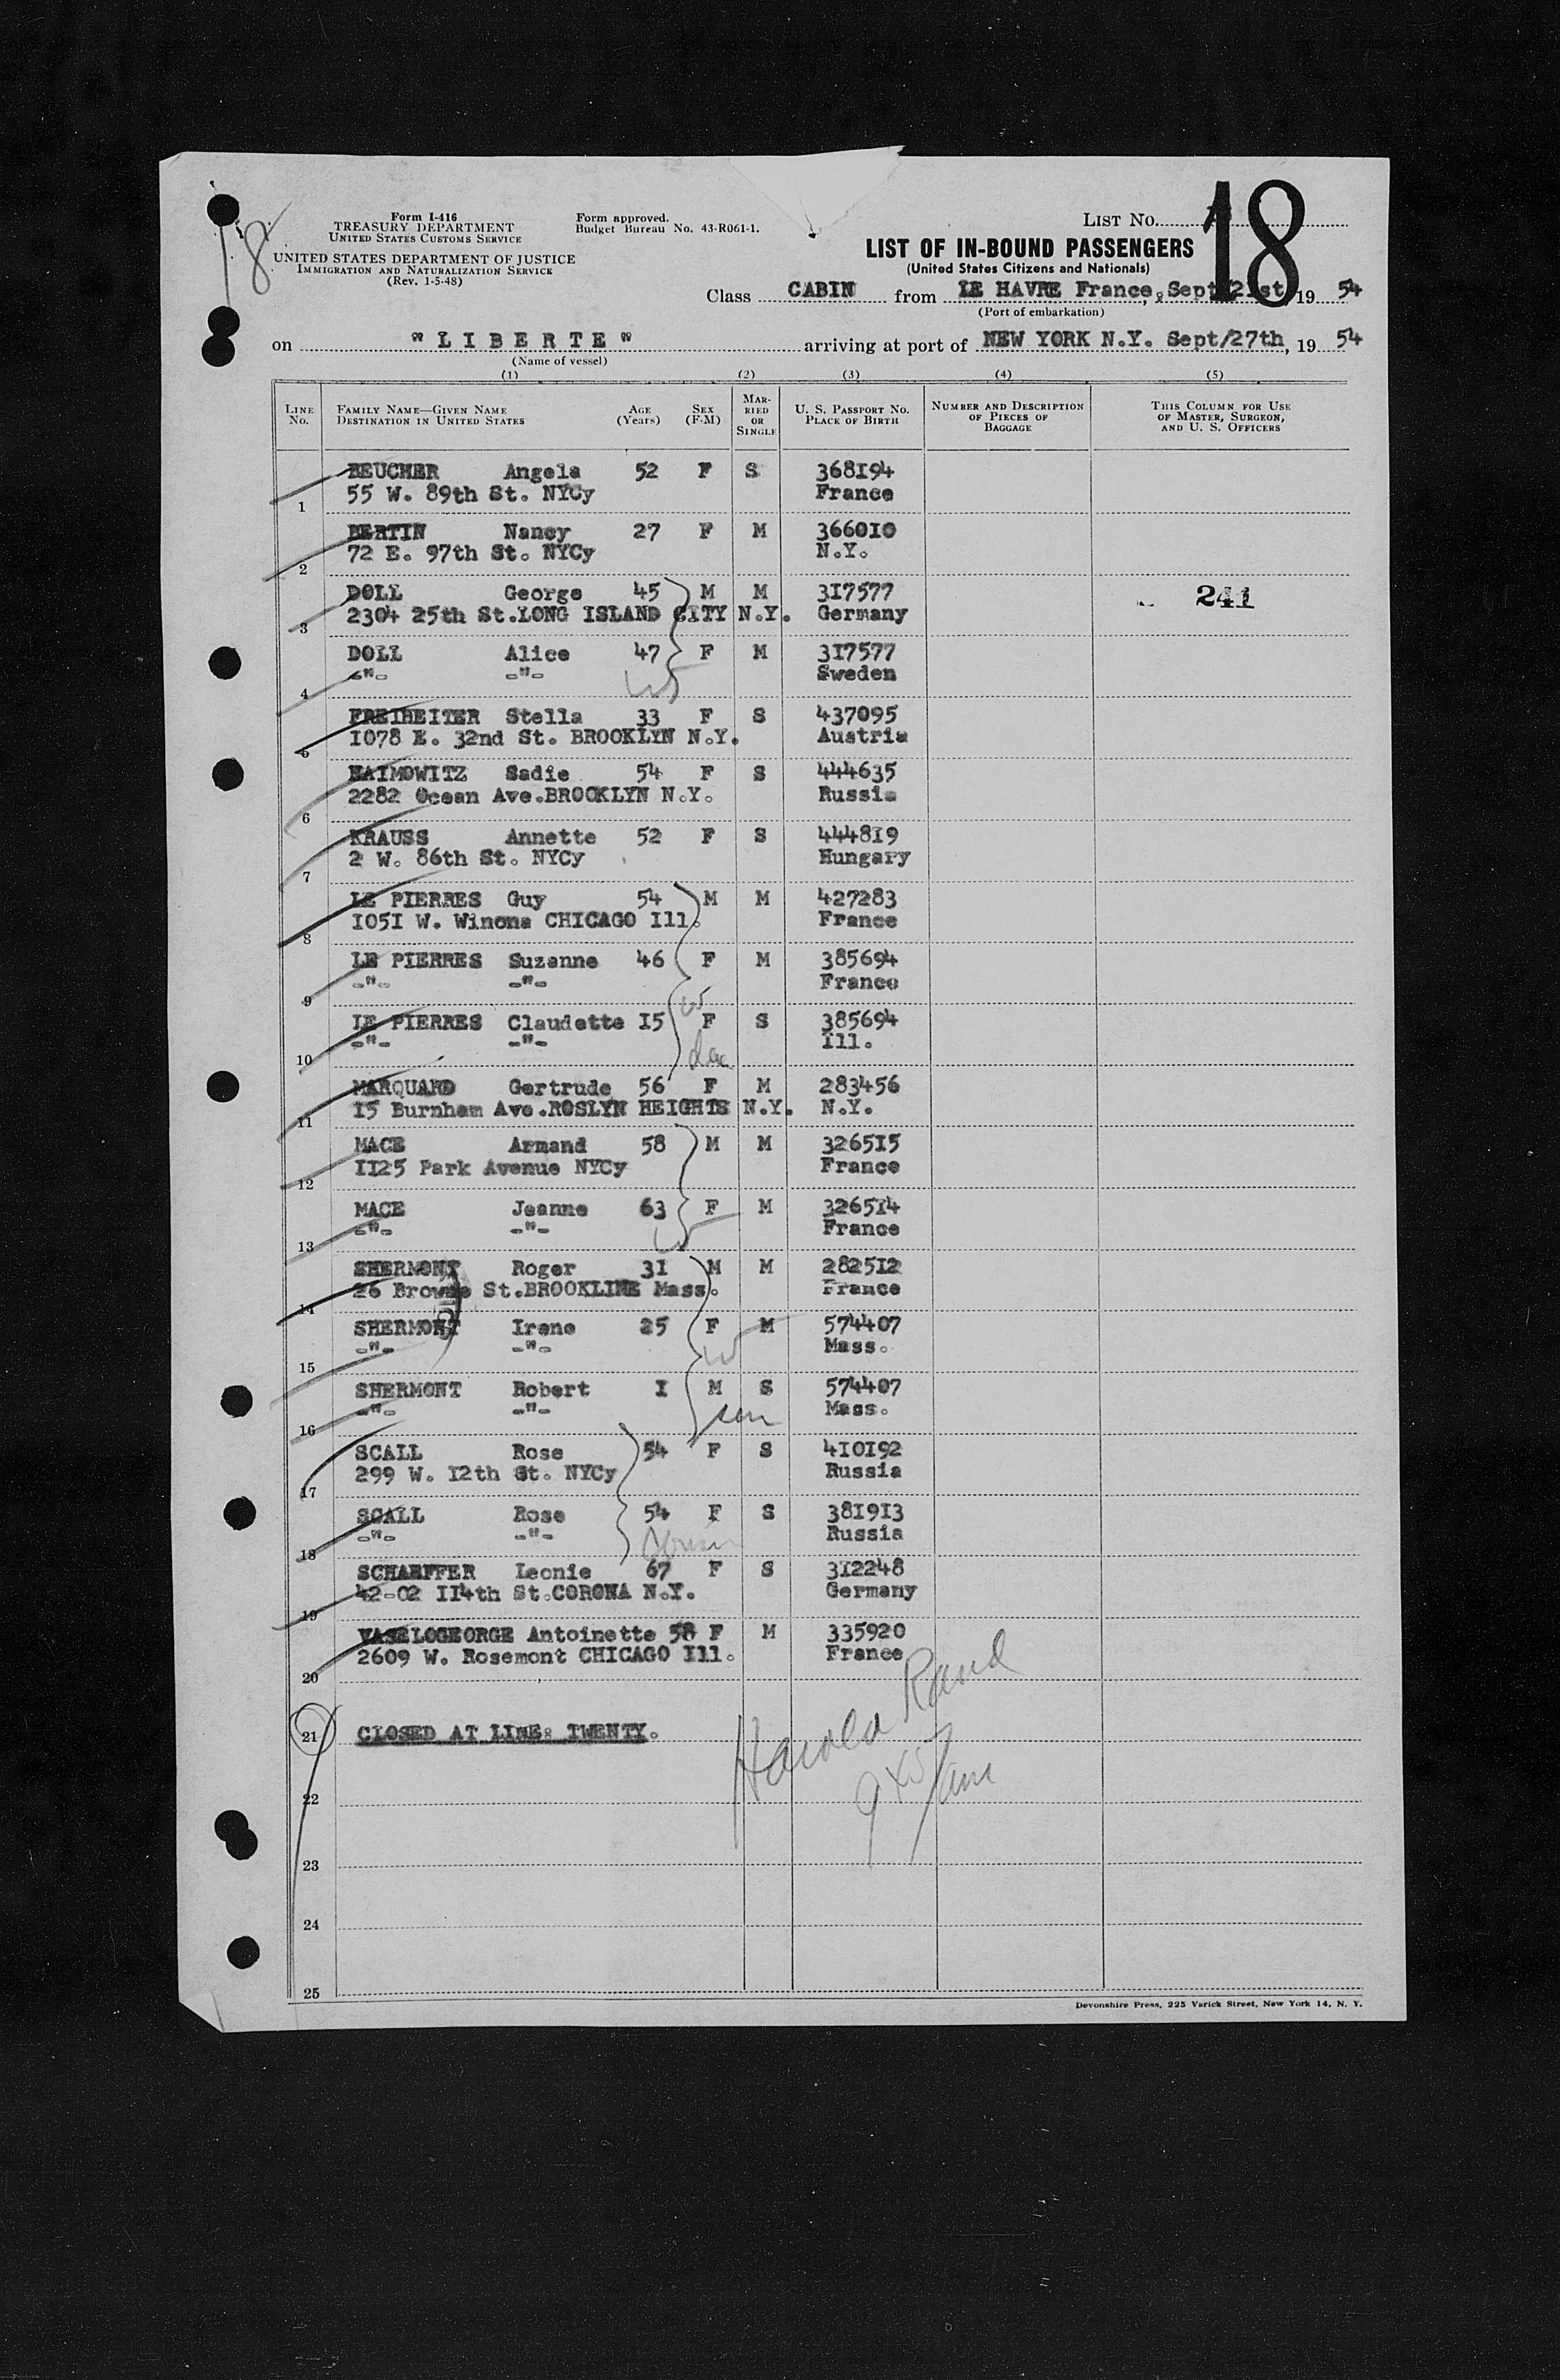 18
Form I-416
TREASURY DEPARTMENT
UNITED STATES CUSTOMS SERVICE
UNITED STATES DEPARTMENT OF JUSTICE
IMMIGRATION AND NATURALIZATION SERVICE
(Rev. 1-5-48)
Form approved.
Budget Bureau No. 43-R061-1.
LIST No. 18
LIST OF IN-BOUND PASSENGERS
(United States Citizens and Nationals)
Class CABIN from LE HAVRE France, Sept/21st, 19 54
(Port of embarkation)
on "LIBERTE" arriving at port of NEW YORK N.Y. Sept/27th, 19 54
(Name of vessel)
(1) (2) (3) (4) (5)
LINE No. FAMILY NAME—GIVEN NAME DESTINATION IN UNITED STATES AGE (Years) SEX (F-M) MARRIED OR SINGLE U. S. PASSPORT No. PLACE OF BIRTH NUMBER AND DESCRIPTION OF PIECES OF BAGGAGE THIS COLUMN FOR USE OF MASTER, SURGEON, AND U. S. OFFICERS
BEUCHER Angela 52 F S 368194
1 55 W. 89th St. NYCy France
BERTIN Nancy 27 F M 366010
2 72 E. 97th St. NYCy N.Y.
DOLL George 45 M M 317577 241
3 2304 25th St.LONG ISLAND CITY N.Y. Germany
DOLL Alice 47 F M 317577
4 -"- -"- W Sweden
FREIHEITER Stella 33 F S 437095
5 1078 E. 32nd St. BROOKLYN N.Y. Austria
HAIMOWITZ Sadie 54 F S 444635
6 2282 Ocean Ave.BROOKLYN N.Y. Russia
KRAUSS Annette 52 F S 444819
7 2 W. 86th St. NYCy Hungary
LE PIERRES Guy 54 M M 427283
8 1051 W. Winona CHICAGO Ill. France
LE PIERRES Suzanne 46 F M 385694
9 -"- -"- W France
LE PIERRES Claudette 15 F S 385694
10 -"- -"- dau Ill.
MARQUARD Gertrude 56 F M 283456
11 15 Burnham Ave.ROSLYN HEIGHTS N.Y. N.Y.
MACE Armand 58 M M 326515
12 1125 Park Avenue NYCy France
MACE Jeanne 63 F M 326514
13 -"- -"- W France
SHERMONT Roger 31 M M 282512
14 26 Browne St.BROOKLINE Mass. France
SHERMONT Irene 25 F M 574407
15 -"- -"- W Mass.
SHERMONT Robert 1 M S 574407
16 -"- -"- son Mass.
SCALL Rose 54 F S 410192
17 299 W. 12th St. NYCy Russia
SCALL Rose 54 F S 381913
18 -"- -"- Cousin Russia
SCHAEFFER Leonie 67 F S 312248
19 42-02 114th St.CORONA N.Y. Germany
VASELOGEORGE Antoinette 58 F M 335920
20 2609 W. Rosemont CHICAGO Ill. France
21 CLOSED AT LINE: TWENTY.
Harold Rand
22
23
24
25
Devonshire Press, 225 Varick Street, New York 14, N. Y.